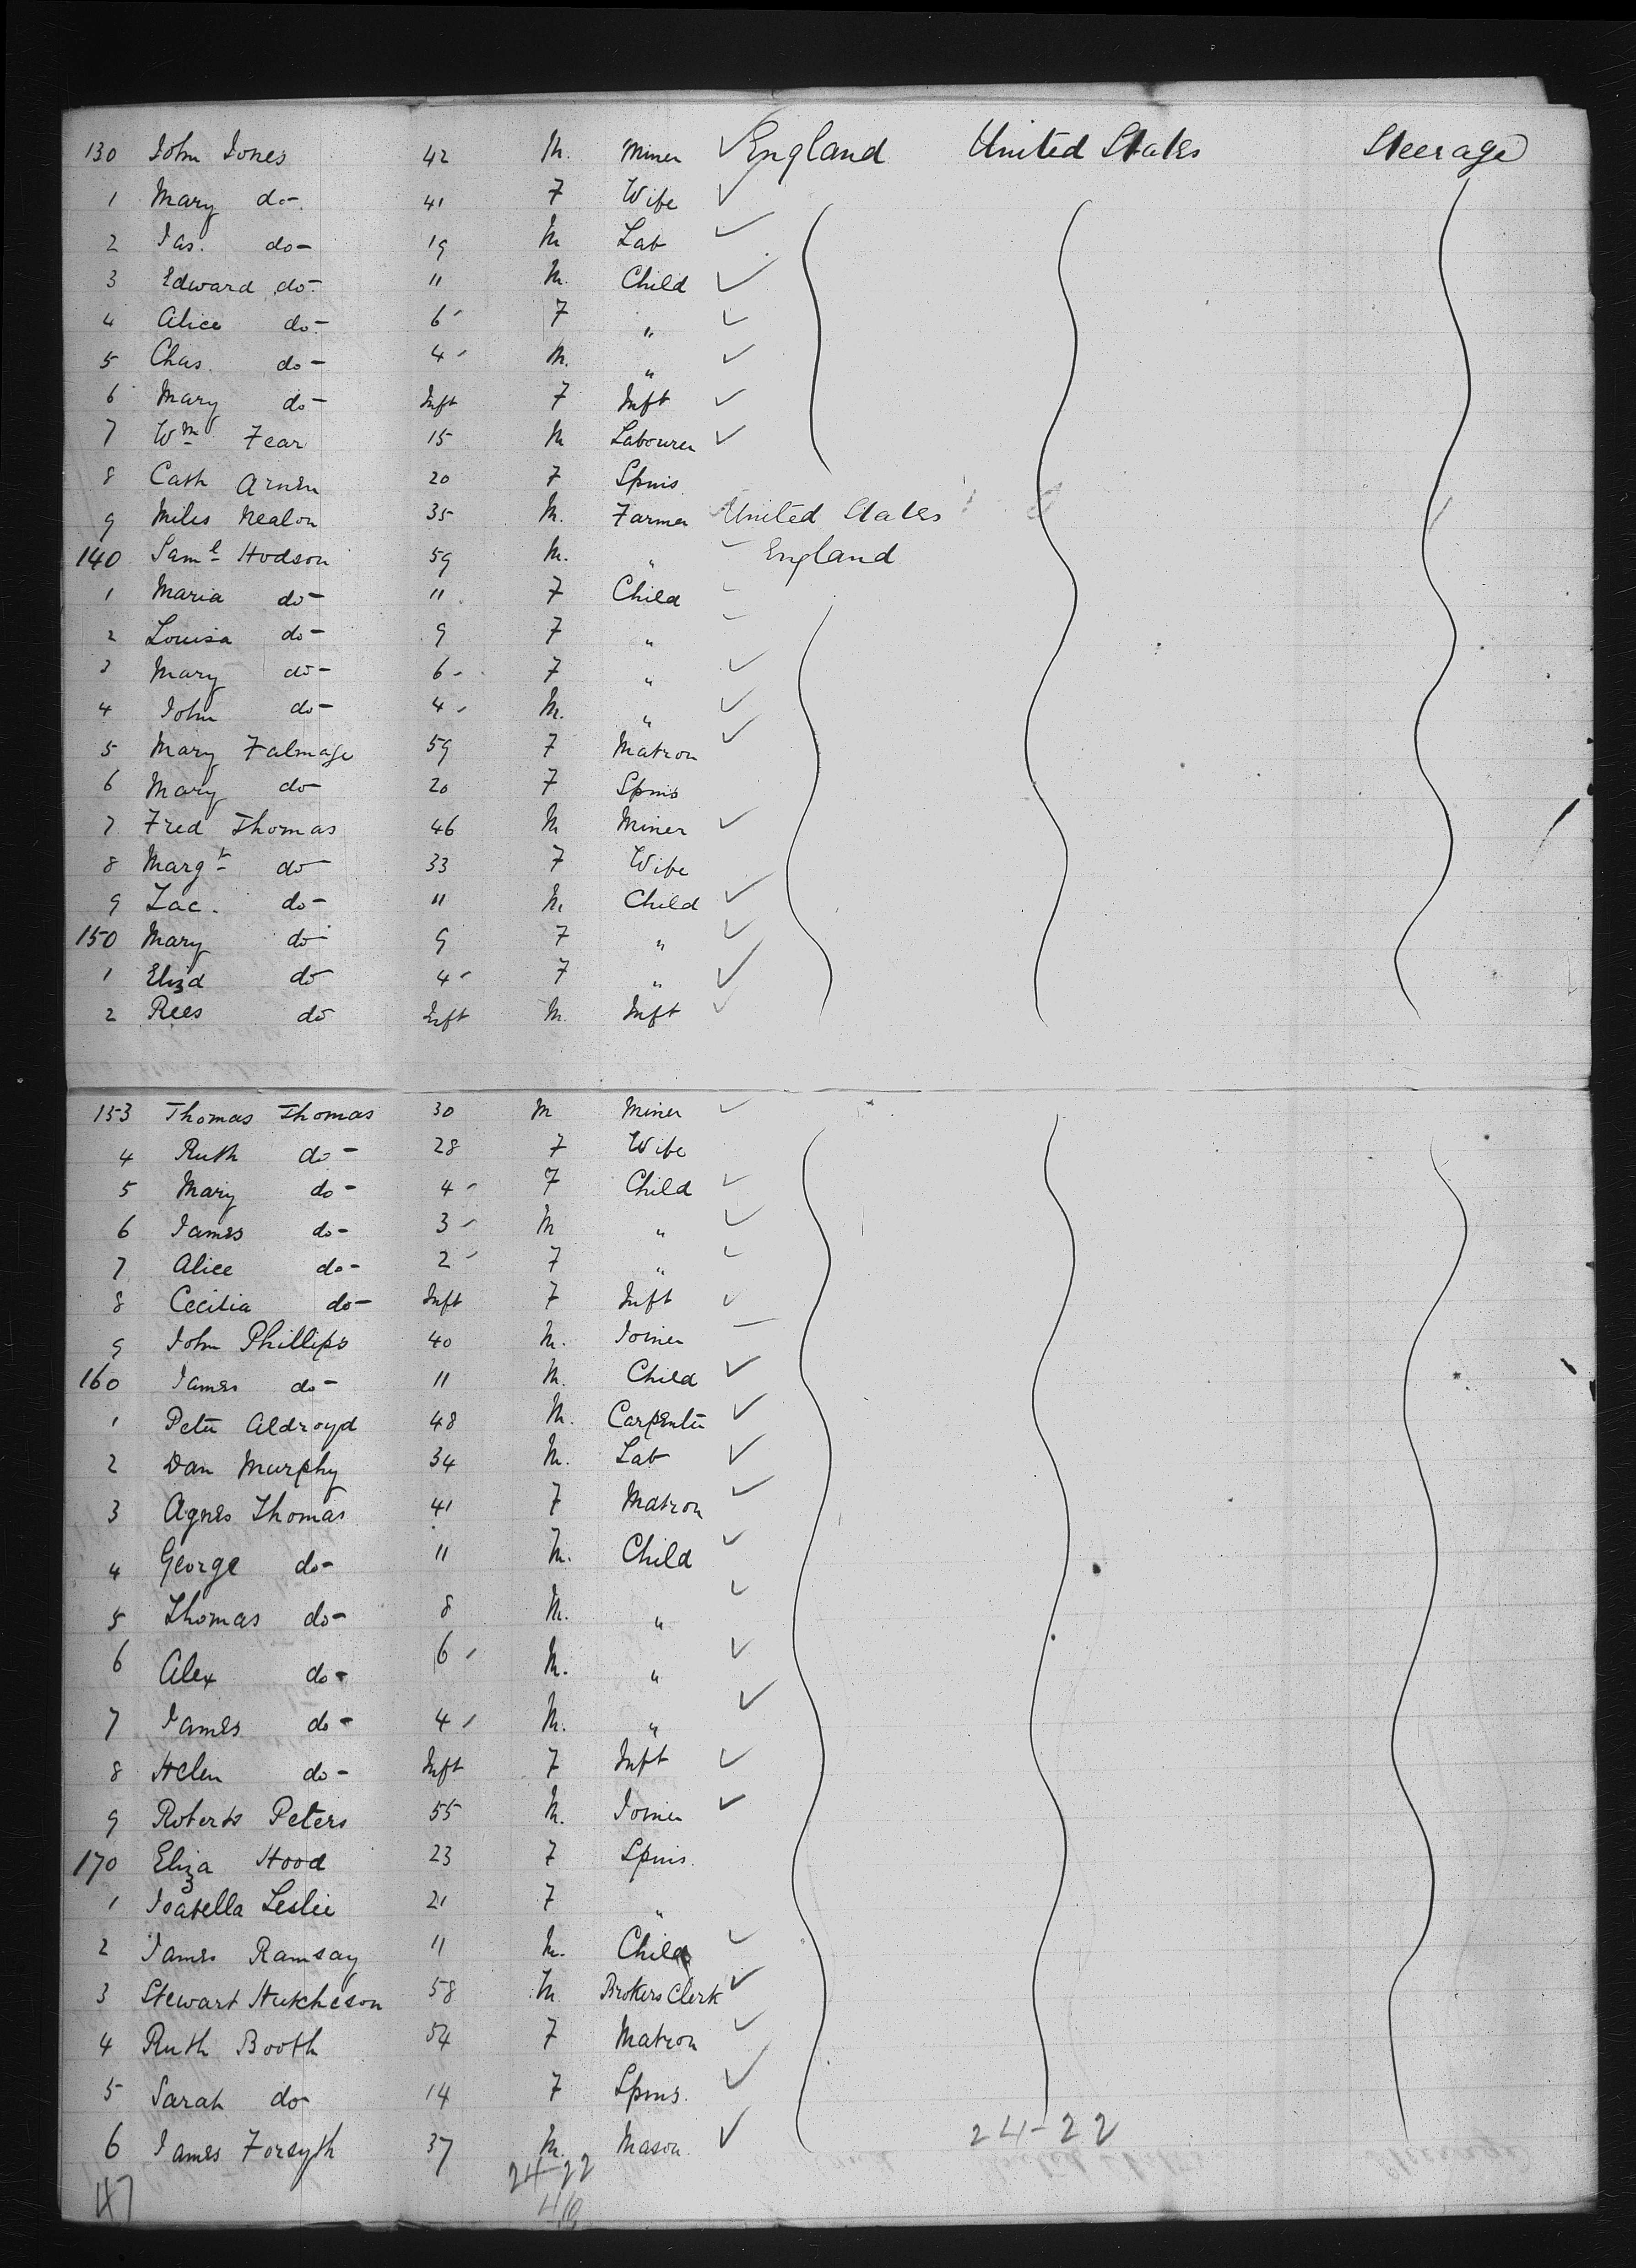 130 John Jones 42 M. Miner England United States Steerage
1 Mary do- 41 F Wife
2 Jas. do- 19 M Lab
3 Edward do- 11 M. Child
4 Alice do- 6 F "
5 Chas. do- 4 M. "
6 Mary do- Inft F Inft
7 Wm Fear 15 M Labourer
8 Cath 20 F Spins
9 Miles Nealon 35 M. Farmer United States
140 Saml Hodson 59 M. " England
1 Maria do- 11 F Child
2 Louisa do- 9 F "
3 Mary do- 6 F "
4 John do- 4 M. "
5 Mary Falmage 59 F Matron
6 Mary do- 20 F Spins
7 Fred Thomas 46 M Miner
8 Margt do- 33 F Wife
9 Zac. do- 11 M Child
150 Mary do- 9 F "
1 Eliza do- 4 F "
2 Rees do- Inft M. Inft
153 Thomas Thomas 30 M Miner
4 Ruth do- 28 F Wife
5 Mary do- 4 F Child
6 James do- 3 M "
7 Alice do- 2 F "
8 Cecilia do- Inft F Inft
9 John Phillips 40 M. Joiner
160 James do- 11 M. Child
1 Peter Aldroyd 48 M. Carpenter
2 Dan Murphy 34 M. Lab
3 Agnes Thomas 41 F Matron
4 George do- 11 M. Child
5 Thomas do- 8 M. "
6 Alex do- 6 M. "
7 James do- 4 M. "
8 Helen do- Inft F Inft
9 Roberts Peters 55 M. Joiner
170 Eliza Hood 23 F Spins.
1 Isabella Leslie 21 F "
2 James Ramsay 11 M. Child
3 Stewart Hutcheson 58 M. Brokers Clerk
4 Ruth Booth 54 F Matron
5 Sarah do- 14 F Spins.
6 James Forsyth 37 M. Mason.
24-22
24-22
47